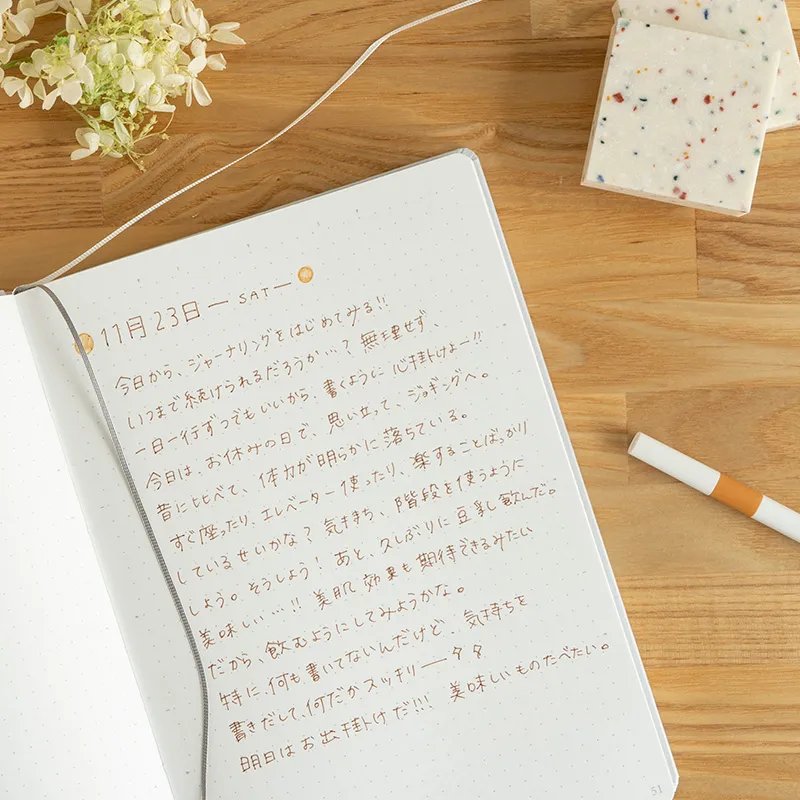 11月23日 ― SAT ―
今日から、ジャーナリングをはじめてみる!!
いつまで続けられるだろうか…? 無理せず、
一日一行ずつでもいいから、書くように心掛けよー!!
今日は、お休みの日で、思い立って、ジョギングへ。
昔に比べて、体力が明らかに落ちている。
すぐ座ったり、エレベーター使ったり、楽することばっかり
しているせいかな? 気持ち、階段を使うようだ
しよう。そうしよう! あと、久しぶりに豆乳飲んだ。
美味しい…!! 美肌効果も期待できるみたい
だから、飲むようにしてみようかな。
特に、何も書いてないんだけど、気持ちを
書きだして、何だかスッキリ―タタ
明日はお出掛けだ!!! 美味しいものたべたい。
51